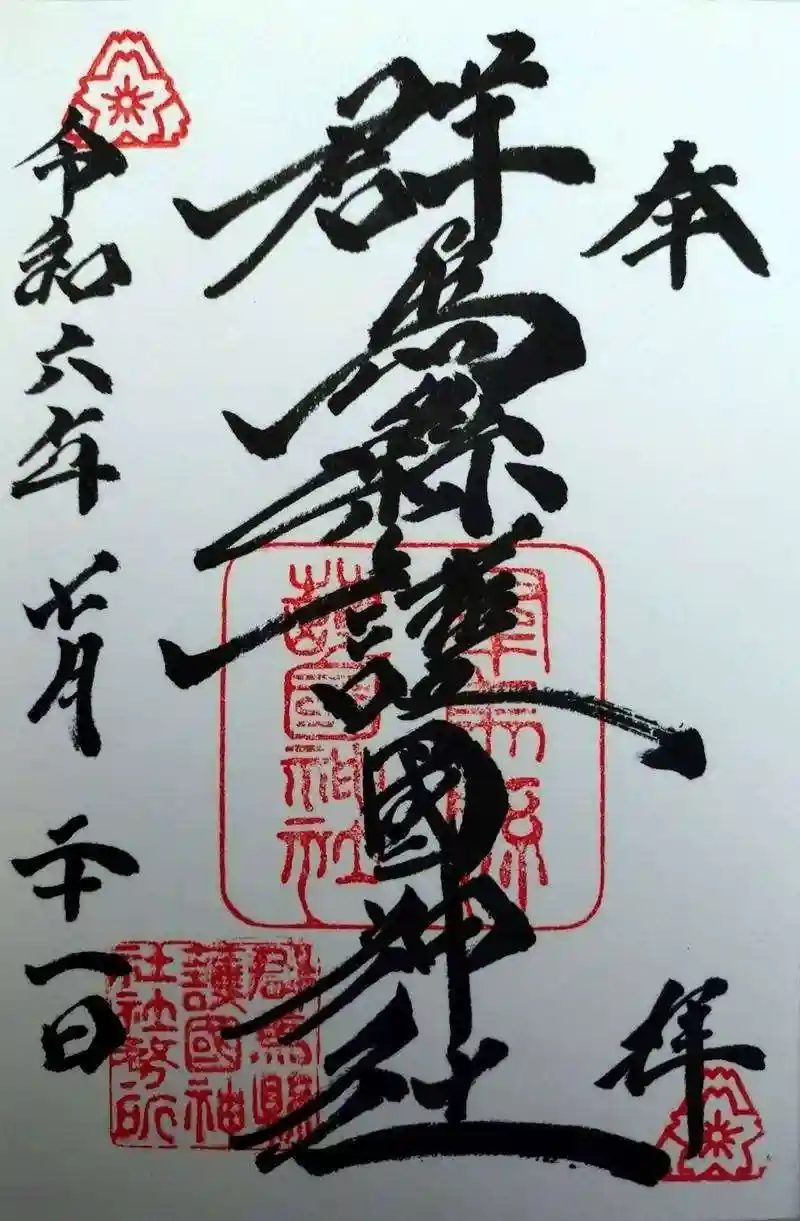 奉拝
群馬縣護國神社
令和六年七月二十一日
群馬縣
護國神社
群馬縣
護國神
社社務所